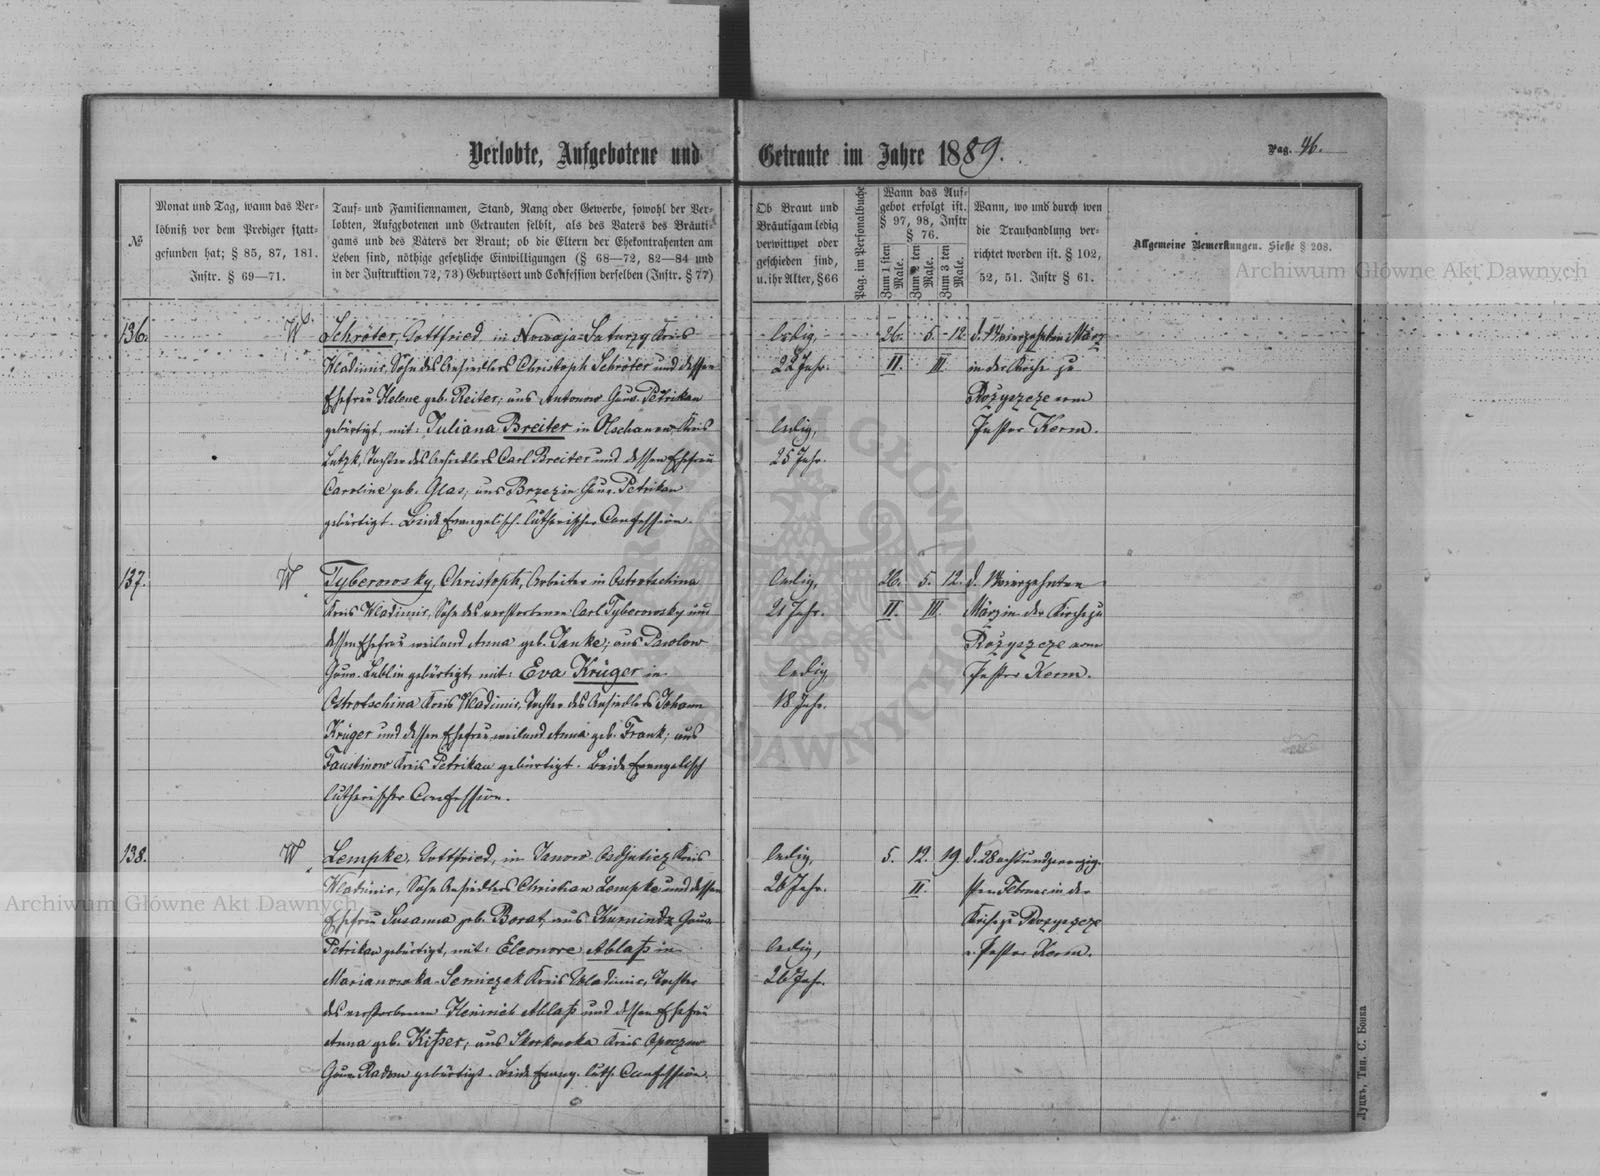 Verlobte, Aufgebotene und Getraute im Jahre 1889. Pag. 46.
№
Monat und Tag, wann das Ver-
löbniß vor dem Prediger statt-
gefunden hat; § 85, 87, 181.
Instr. § 69—71.
Tauf- und Familiennamen, Stand, Rang oder Gewerbe, sowohl der Ver-
lobten, Aufgebotenen und Getrauten selbst, als des Vaters des Bräuti-
gams und des Vaters der Braut; ob die Eltern der Ehekontrahenten am
Leben sind, nöthige gesetzliche Einwilligungen (§ 68—72, 82—84 und
in der Instruktion 72, 73) Geburtsort und Confession derselben (Instr. § 77)
Ob Braut und
Bräutigam ledig
verwittwet oder
geschieden sind,
u. ihr Alter, § 66
Pag. im Personalbuche
Wann das Auf-
gebot erfolgt ist.
§ 97, 98, Instr
§ 76.
Zum 1 sten
Male.
Zum 2 ten
Male.
Zum 3 ten
Male.
Wann, wo und durch wen
die Trauhandlung ver-
richtet worden ist. § 102,
52, 51. Instr § 61.
Allgemeine Bemerkungen. Siehe § 208.
Archiwum Główne Akt Dawnych
136. W
Schröter, Gottfried, in Nowaja-Saturzy Kreis
Wladimir, Sohn des Ansiedlers Christoph Schröter und dessen
Ehefrau Helene geb. Reiter; aus Antonow Gouv. Petrikau
gebürtigt, mit: Juliana Breiter in Olschanow Kreis
Lutzk, Tochter des Ansiedlers Carl Breiter und dessen Ehefrau
Caroline geb. Glas, aus Brzezin Gouv. Petrikau
gebürtigt. Beide Evangelisch-lutherischer Confession.
ledig,
22 Jahr.
ledig,
25 Jahr.
26. 5. 12.
II. III.
d. Vierzehnten März
in der Kirche zu
Rożyszcze vom
Pastor Kerm.
137. W
Tyberowsky, Christoph, Arbeiter in Ostrotschina
Kreis Wladimir, Sohn des verstorbenen Carl Tyberowsky und
dessen Ehefrau weiland Anna geb. Janke; aus Pawlow
Gouv. Lublin gebürtigt, mit: Eva Krüger in
Ostrotschina Kreis Wladimir, Tochter des Ansiedlers Johann
Krüger und dessen Ehefrau weiland Anna geb. Frank; aus
Faustinow Kreis Petrikau gebürtigt. Beide Evangelisch
lutherischer Confession.
ledig,
21 Jahr.
ledig,
18 Jahr.
26. 5. 12.
II. III.
d. Vierzehnten
März in der Kirche zu
Rożyszcze vom
Pastor Kerm.
138. W
Lempke, Gottfried, in Janow-Osdjuticz Kreis
Wladimir, Sohn Ansiedlers Christian Lempke und dessen
Ehefrau Susanna geb. Borat, aus Gouv.
Petrikau gebürtigt, mit: Eleonore Ablaß in
Marianowka-Semiczek Kreis Wladimir, Tochter
des verstorbenen Heinrich Ablaß und dessen Ehefrau
Anna geb. Kißer; aus Skorkowka Kreis Opoczno
Gouv. Radom gebürtigt. Beide Evang. luth. Confession.
ledig,
26 Jahr.
ledig,
26 Jahr.
5. 12. 19.
II.
d. 28 achtundzwanzig-
sten Februar in der
Kirche zu Rożyszcze
v. Pastor Kerm.
Archiwum Główne Akt Dawnych
Луцкъ, Тип. С. Бонка